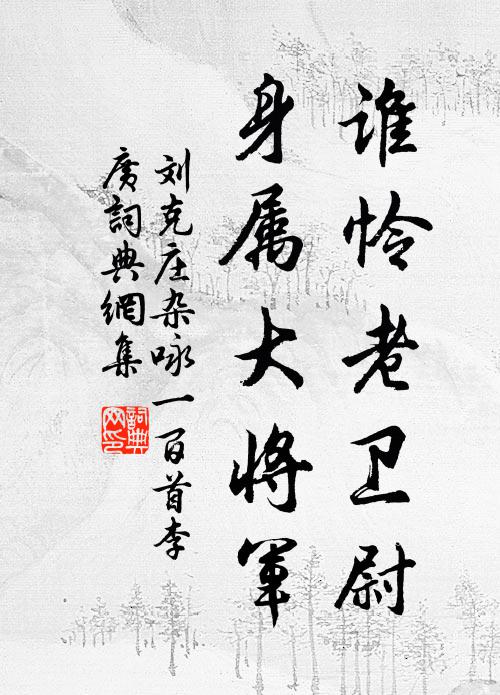 谁怜老卫尉
身属大将军
刘克庄杂咏一百首李
广詞典網集
詞典网印